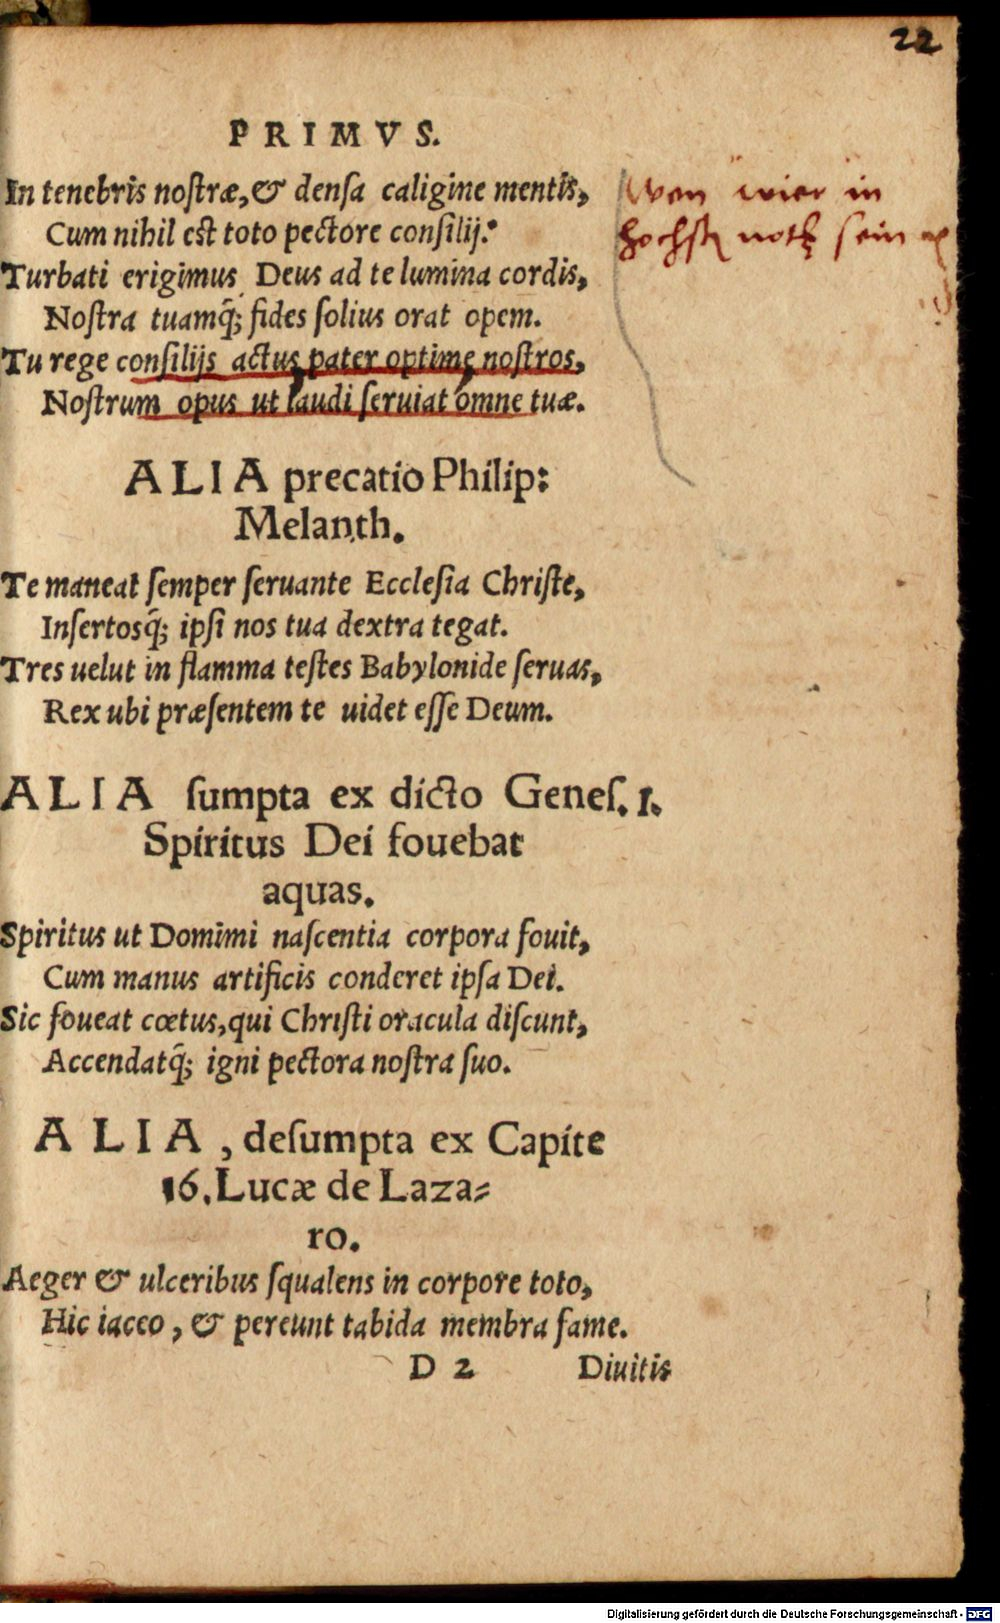 22
PRIMVS.
In tenebris nostræ, & densa caligine mentis,
Cum nihil est toto pectore consilij.
Turbati erigimus Deus ad te lumina cordis,
Nostra tuamq́; fides solius orat opem.
Tu rege consilijs actus pater optime nostros,
Nostrum opus ut laudi seruiat omne tuæ.
Wen wier in
hochster noth sein
ALIA precatio Philip:
Melanth.
Te maneat semper seruante Ecclesia Christe,
Insertosq́; ipsi nos tua dextra tegat.
Tres uelut in flamma testes Babylonide seruas,
Rex ubi præsentem te uidet esse Deum.
ALIA sumpta ex dicto Genes. 1.
Spiritus Dei fouebat
aquas.
Spiritus ut Domimi nascentia corpora fouit,
Cum manus artificis conderet ipsa Dei.
Sic foueat cœtus, qui Christi oracula discunt,
Accendatq́; igni pectora nostra suo.
ALIA, desumpta ex Capite
16. Lucæ de Laza-
ro.
Aeger & ulceribus squalens in corpore toto,
Hic iaceo, & pereunt tabida membra fame.
D 2 Diuitis
Digitalisierung gefördert durch die Deutsche Forschungsgemeinschaft - DFG